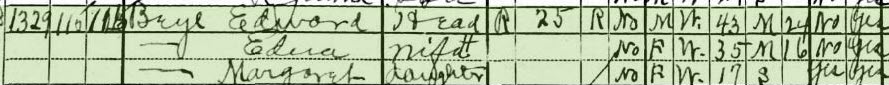 1329 115 116 Beyl Edward Head R 25 R No M W. 43 M 24 No Yes
— Edna Wife H No F W. 35 M 16 No Yes
— Margaret daughter No F W. 17 S Yes Yes